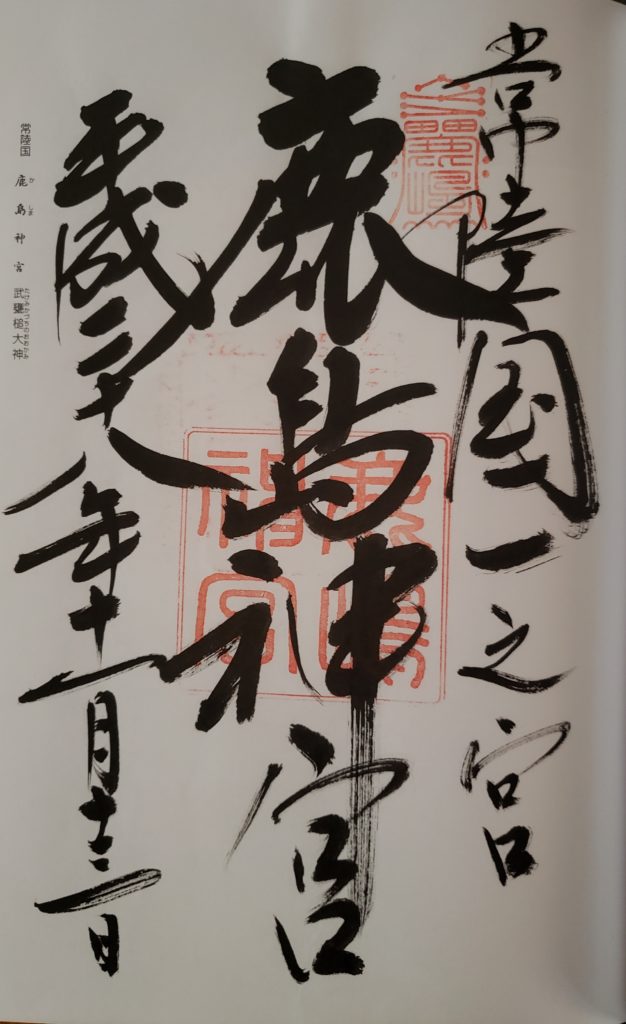 常陸国一之宮
鹿島神宮
平成二十八年十一月十三日
常陸国 鹿島神宮 武甕槌大神